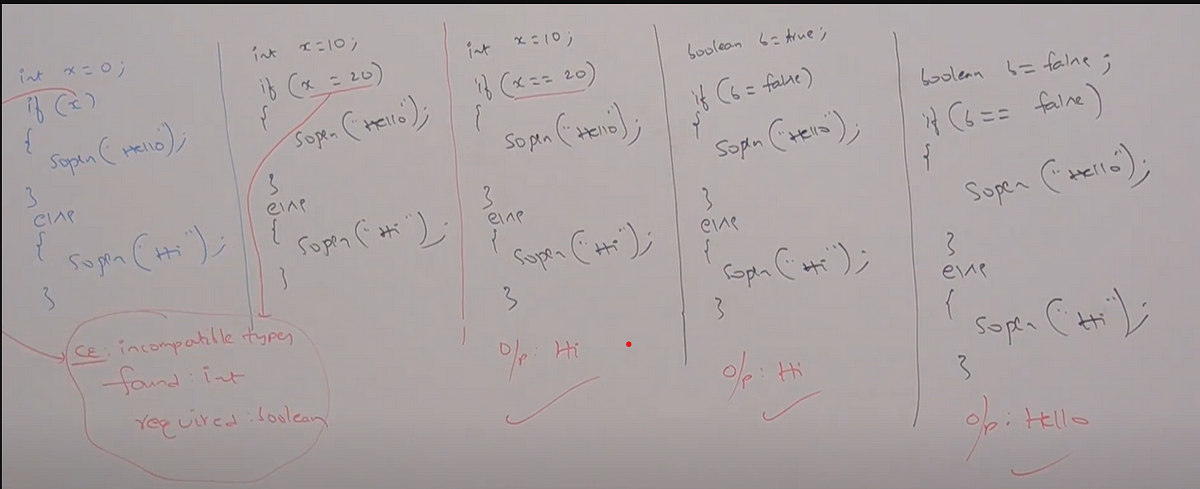 int x=0;
if (x)
{
Sopln("Hello");
}
else
{
Sopln("Hi");
}
CE: incompatible types
found: int
required: boolean
int x=10;
if (x = 20)
{
Sopln("Hello");
}
else
{
Sopln("Hi");
}
int x=10;
if (x== 20)
{
Sopln("Hello");
}
else
{
Sopln("Hi");
}
O/p: Hi
boolean b=true;
if (b=false)
{
Sopln("Hello");
}
else
{
Sopln("Hi");
}
O/p: Hi
boolean b=false;
if (b== false)
{
Sopln("Hello");
}
else
{
Sopln("Hi");
}
O/p: Hello